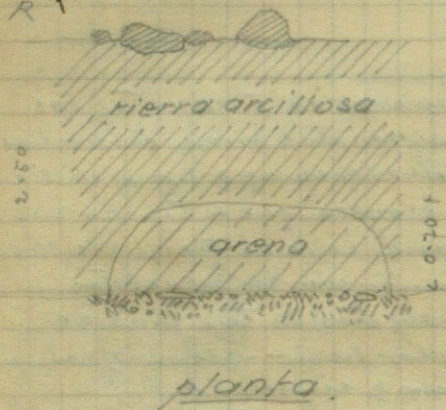 R
rierra arcillosa
2.50
arena
planta.